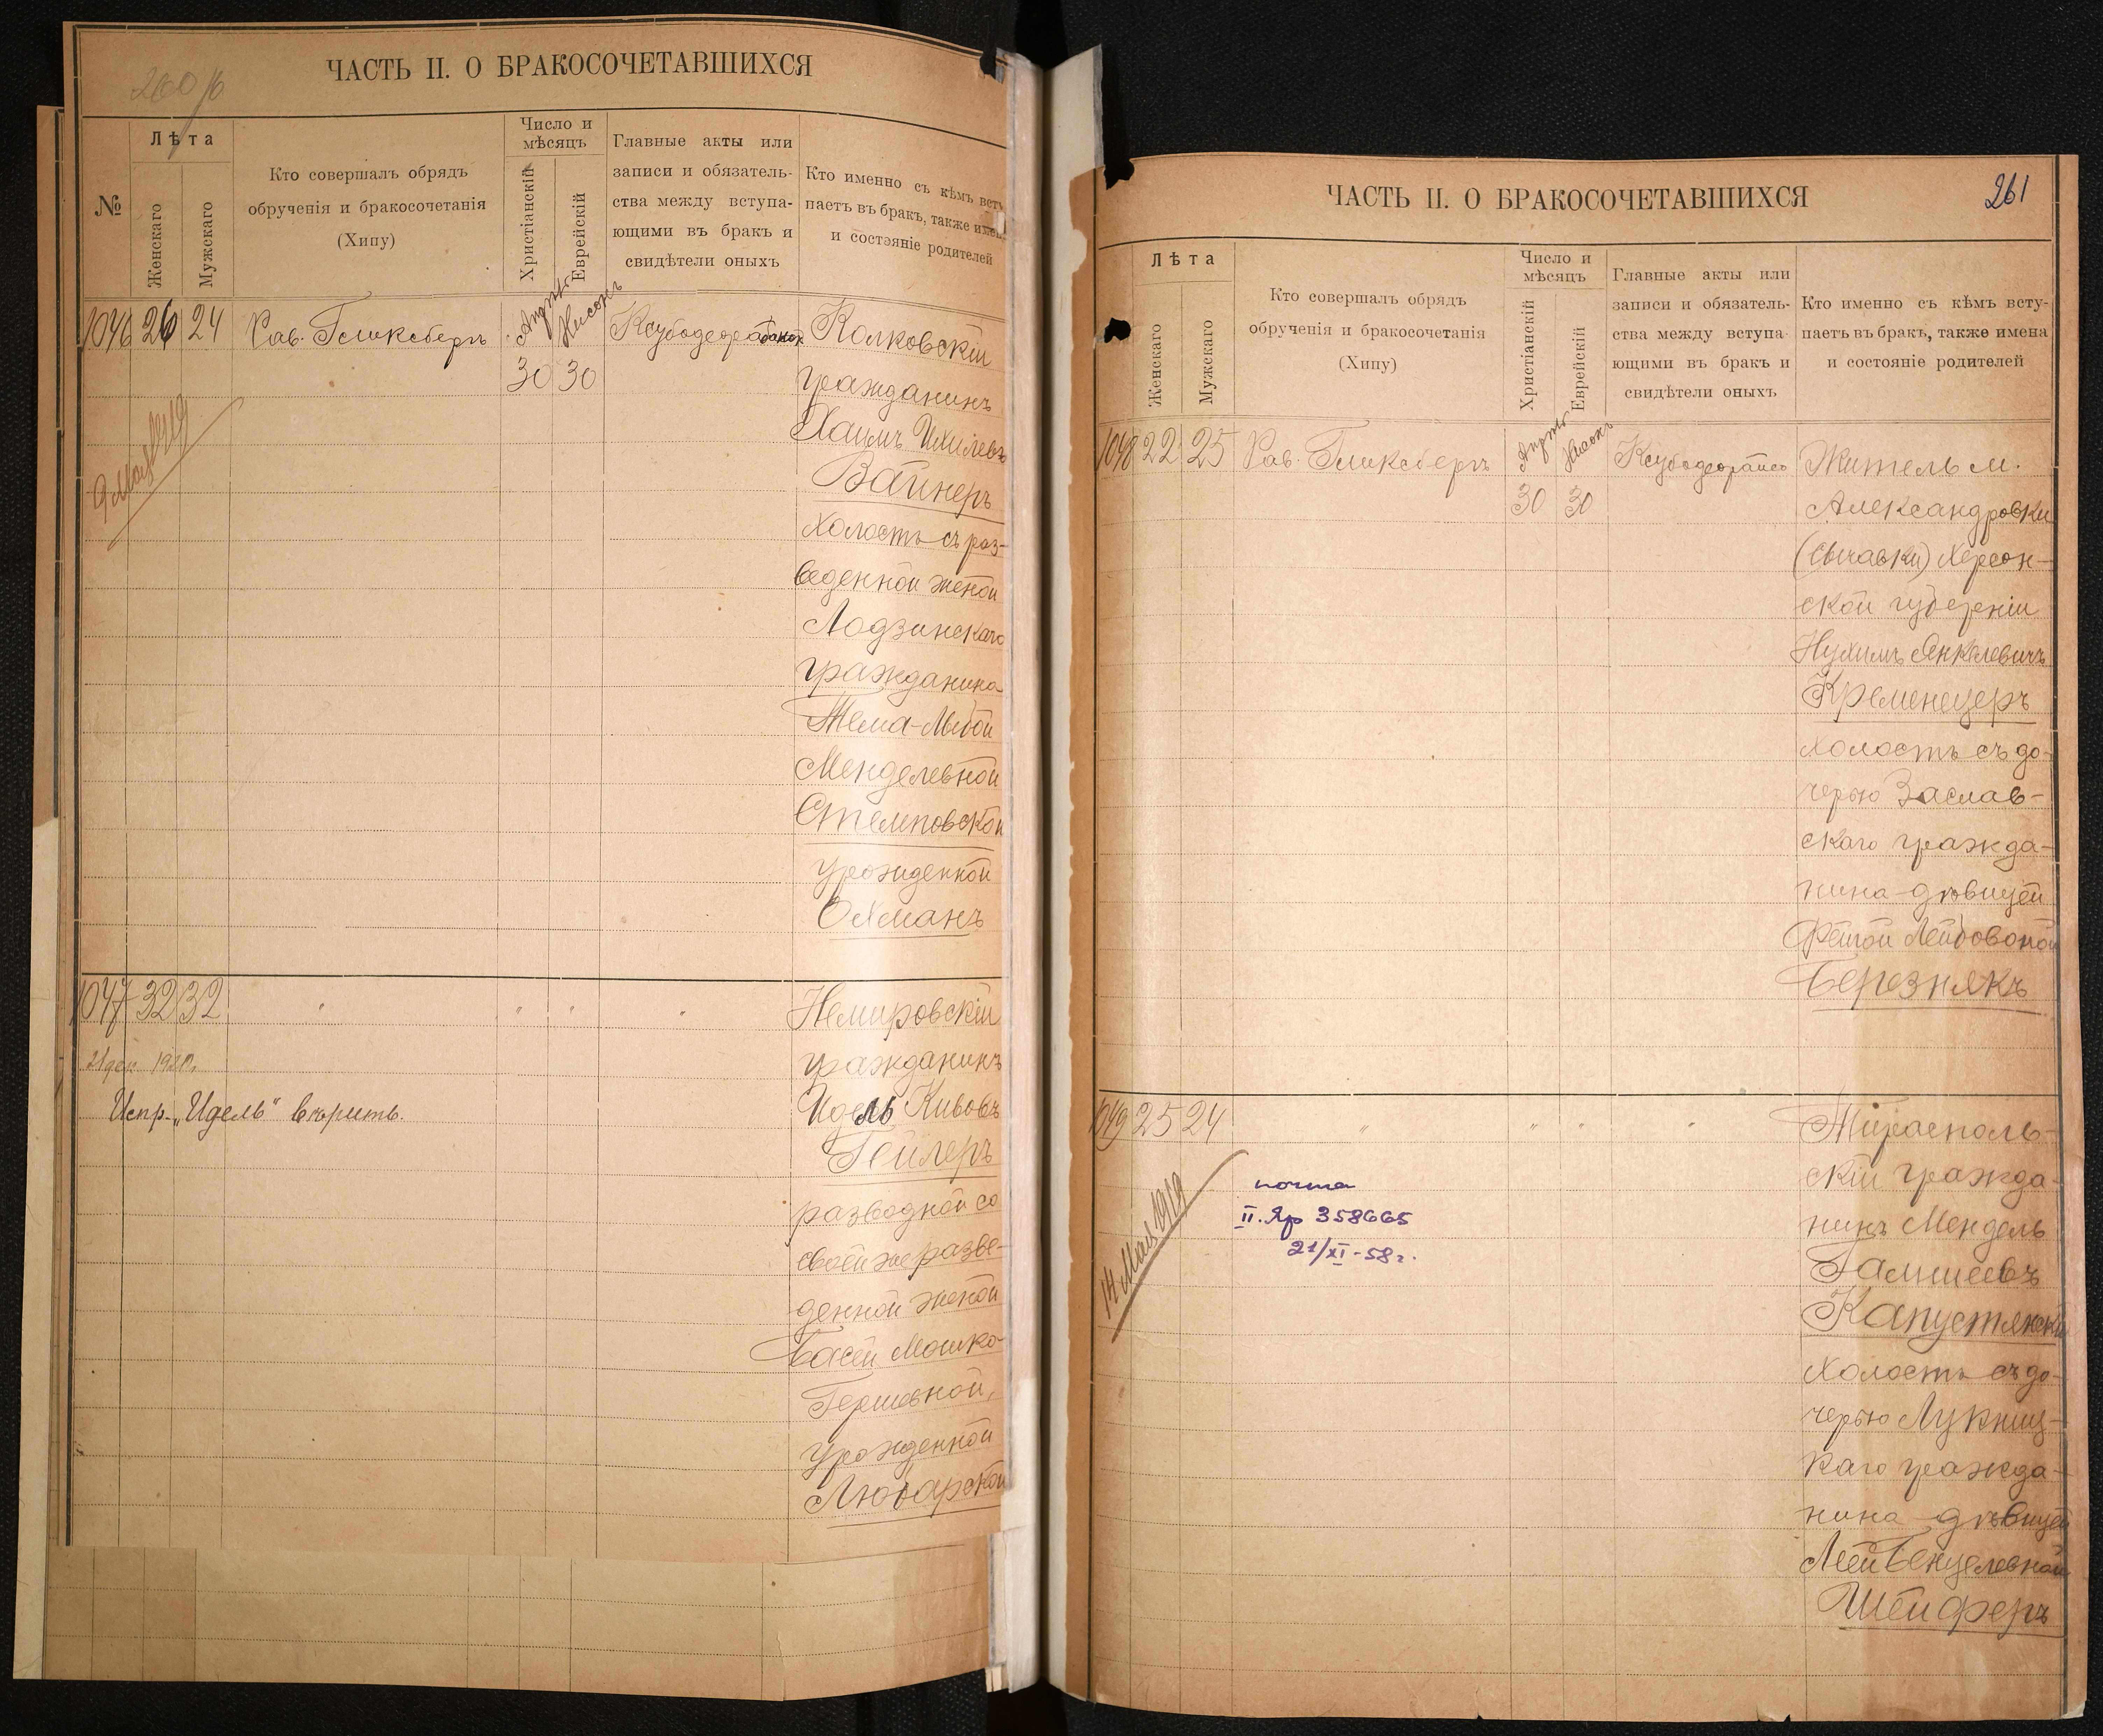 260/б
ЧАСТЬ II. О БРАКОСОЧЕТАВШИХСЯ
№
Лѣта
Женскаго
Мужскаго
Кто совершалъ обрядъ
обрученія и бракосочетанія
(Хипу)
Число и
мѣсяцъ
Христіанскій
Еврейскій
Главные акты или
записи и обязатель-
ства между вступа-
ющими въ бракъ и
свидѣтели оныхъ
Кто именно съ кѣмъ всту
паетъ въ бракъ, также имен
и состояніе родителей
1046 26 24 Рав. Гликсбергъ Апрѣль 30 Нисонъ 30
Колковскій
гражданинъ
Хаимъ Ихилевъ
Вайнеръ
холостъ съ раз-
веденной женой
Лодзинскаго
гражданина
Тема-Либой
Менделевной
Стемповской
урожденной
Охманъ
9 Мая 1919
1047 32 32 " " " "
Немировскій
гражданинъ
Идель Кивовъ
Гейлеръ
разводной со
своей же разве-
денной женой
Басей Мошко-
Гершевной,
урожденной
Любарской
21 дек. 1920.
Испр. „Идель" вѣрить.
261
ЧАСТЬ II. О БРАКОСОЧЕТАВШИХСЯ
Лѣта
Женскаго
Мужскаго
Кто совершалъ обрядъ
обрученія и бракосочетанія
(Хипу)
Число и
мѣсяцъ
Христіанскій
Еврейскій
Главные акты или
записи и обязатель-
ства между вступа-
ющими въ бракъ и
свидѣтели оныхъ
Кто именно съ кѣмъ всту-
паетъ въ бракъ, также имена
и состояніе родителей
1048 22 25 Рав. Гликсбергъ Апрѣль 30 Нисонъ 30
Житель м.
Александровки
(Сычавки) Херсон-
ской губерніи
Нухимъ Янкелевичъ
Кременецеръ
холостъ съ до-
черью Заслав-
скаго гражда-
нина-дѣвицей
Фейгой Лейбовоной
Березнякъ
1049 25 24 " " " "
Тирасполь-
скій гражда-
нинъ Мендель
Гамшеевъ
Капустянскій
холостъ съ до-
черью Лукниц-
каго гражда-
нина-дѣвицей
Леей Бенцелевной
Шейферъ
14 Мая 1919
почта
II. Яр 358665
21/XI-58 г.